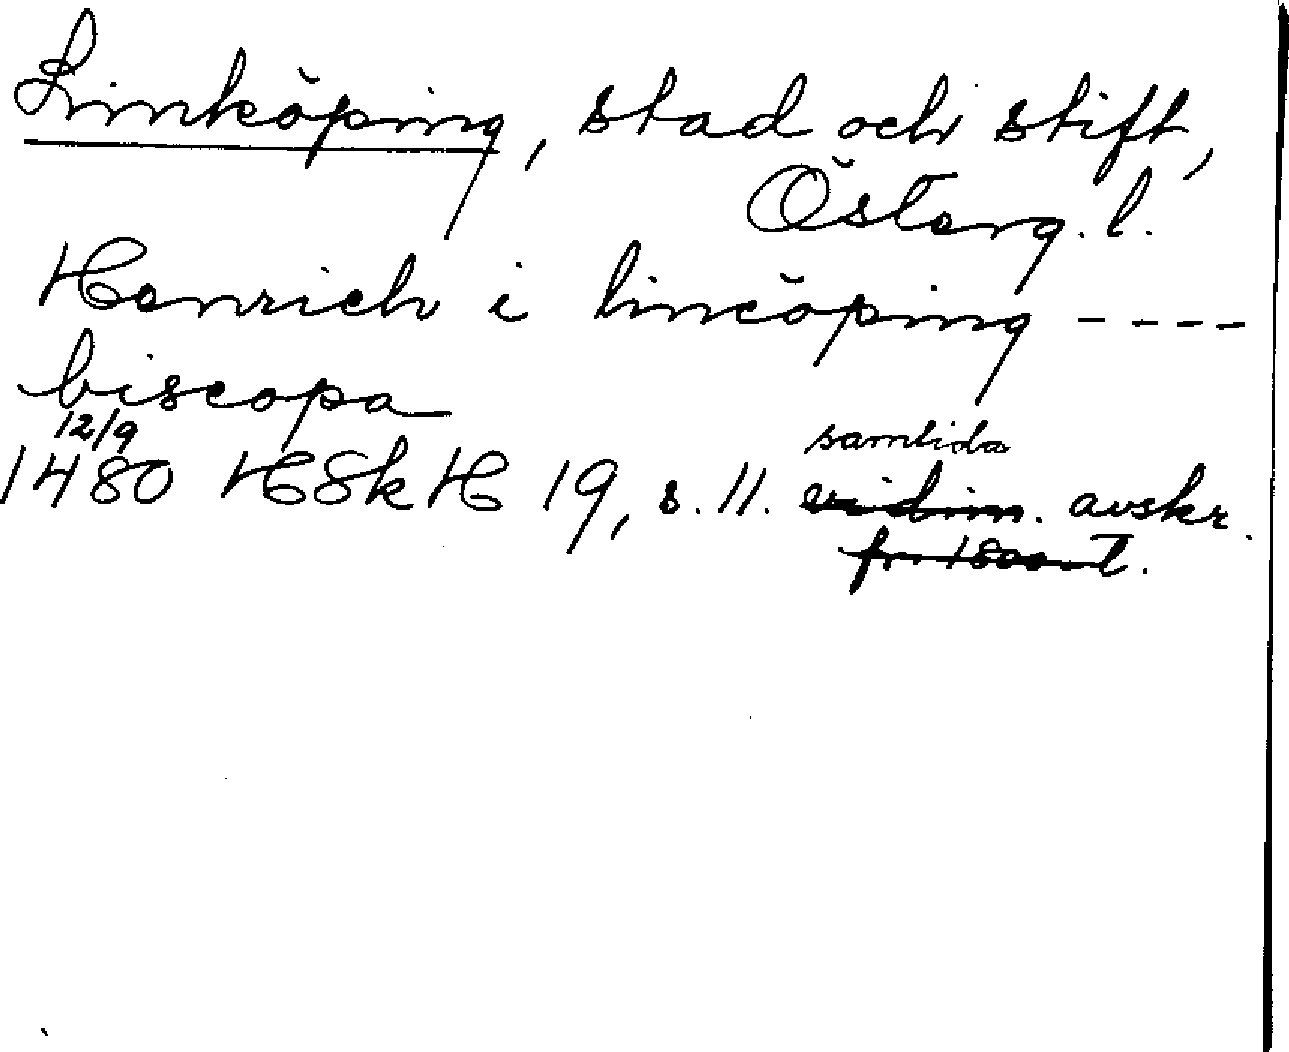 Linköping, stad och stift,
Österg. l.
Henrich i lincöping ----
biscopa
12/9
1480 HSkH 19, s. 11. samtida vidim. avskr.
fr. 1800-t.